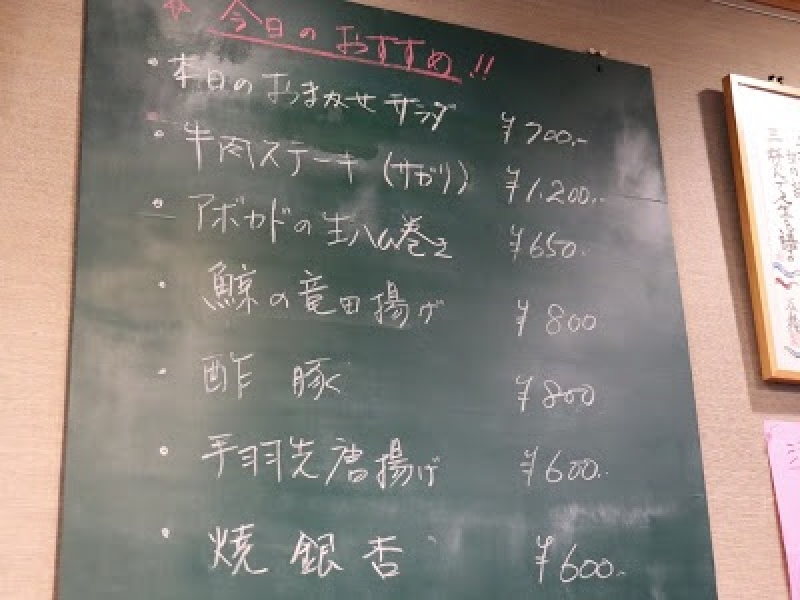 ☆ 今日のおすすめ!!
・本日のおまかせサラダ ¥700.-
・牛肉ステーキ(サガリ) ¥1.200.-
・アボカドの生ハム巻き ¥650.
・鯨の竜田揚げ ¥800
・酢豚 ¥800
・手羽先唐揚げ ¥600.-
・焼銀杏 ¥600.-